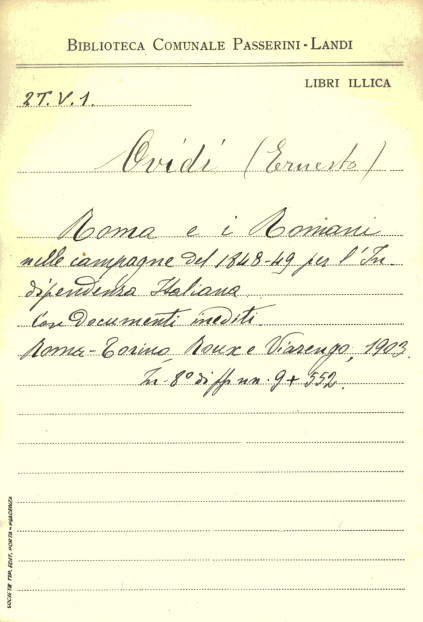 BIBLIOTECA COMUNALE PASSERINI-LANDI
LIBRI ILLICA
2T.V.1.
Ovidi (Ernesto)
Roma e i Romani
nelle campagne del 1848-49 per l'In-
dipendenza Italiana
Con documenti inediti.
Roma-Torino, Roux e Viarengo, 1903.
In-8° di pp nn. 9+552.
SOCIETÀ TIP. EDIT. PORTA - PIACENZA